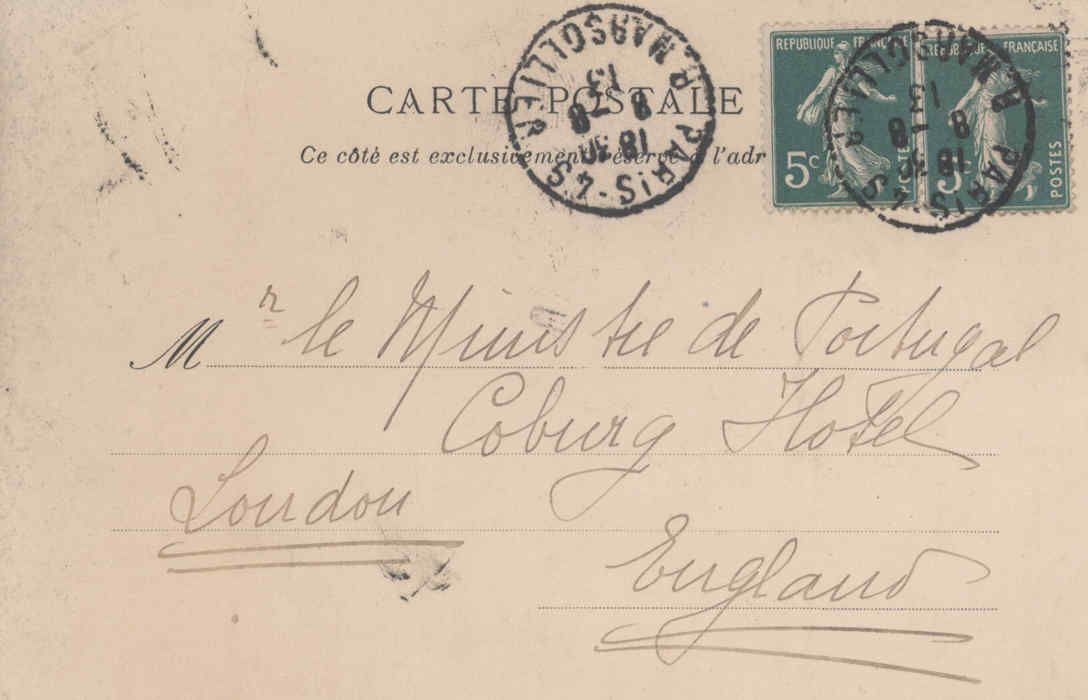 CARTE POSTALE
Ce côté est exclusivement réservé à l'adr
REPUBLIQUE FRANÇAISE
5c
POSTES
REPUBLIQUE FRANÇAISE
5c
POSTES
PARIS-4S
R. MARSOLLIER
18 30
8 -8
13
PARIS-4S
R. MARSOLLIER
18 30
8 -8
13
Mr le Ministre de Portugal
Coburg Hotel
London
England